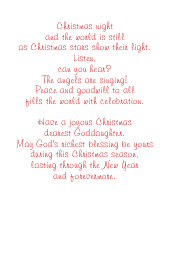 Christmas night
and the world is still
as Christmas stars show their light.
Listen,
can you hear?
The angels are singing!
Peace and goodwill to all
fills the world with celebration.

Have a joyous Christmas
dearest Goddaughter.
May God's richest blessing be yours
during this Christmas season,
lasting through the New Year
and forevermore.